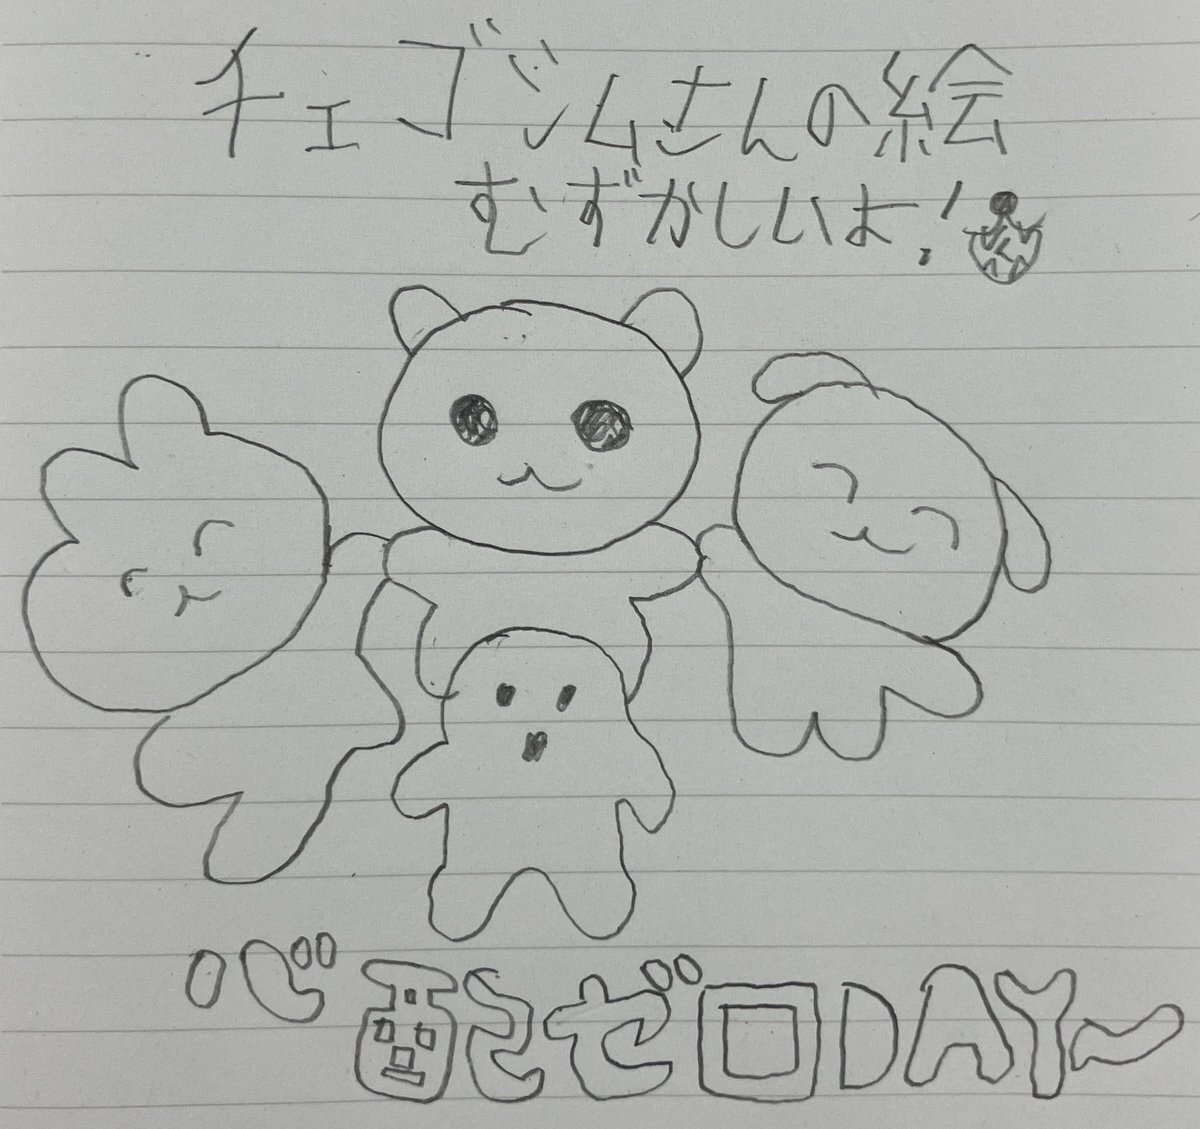 チェゴシムさんの絵
むずかしいよ!
ゼロDAY〜